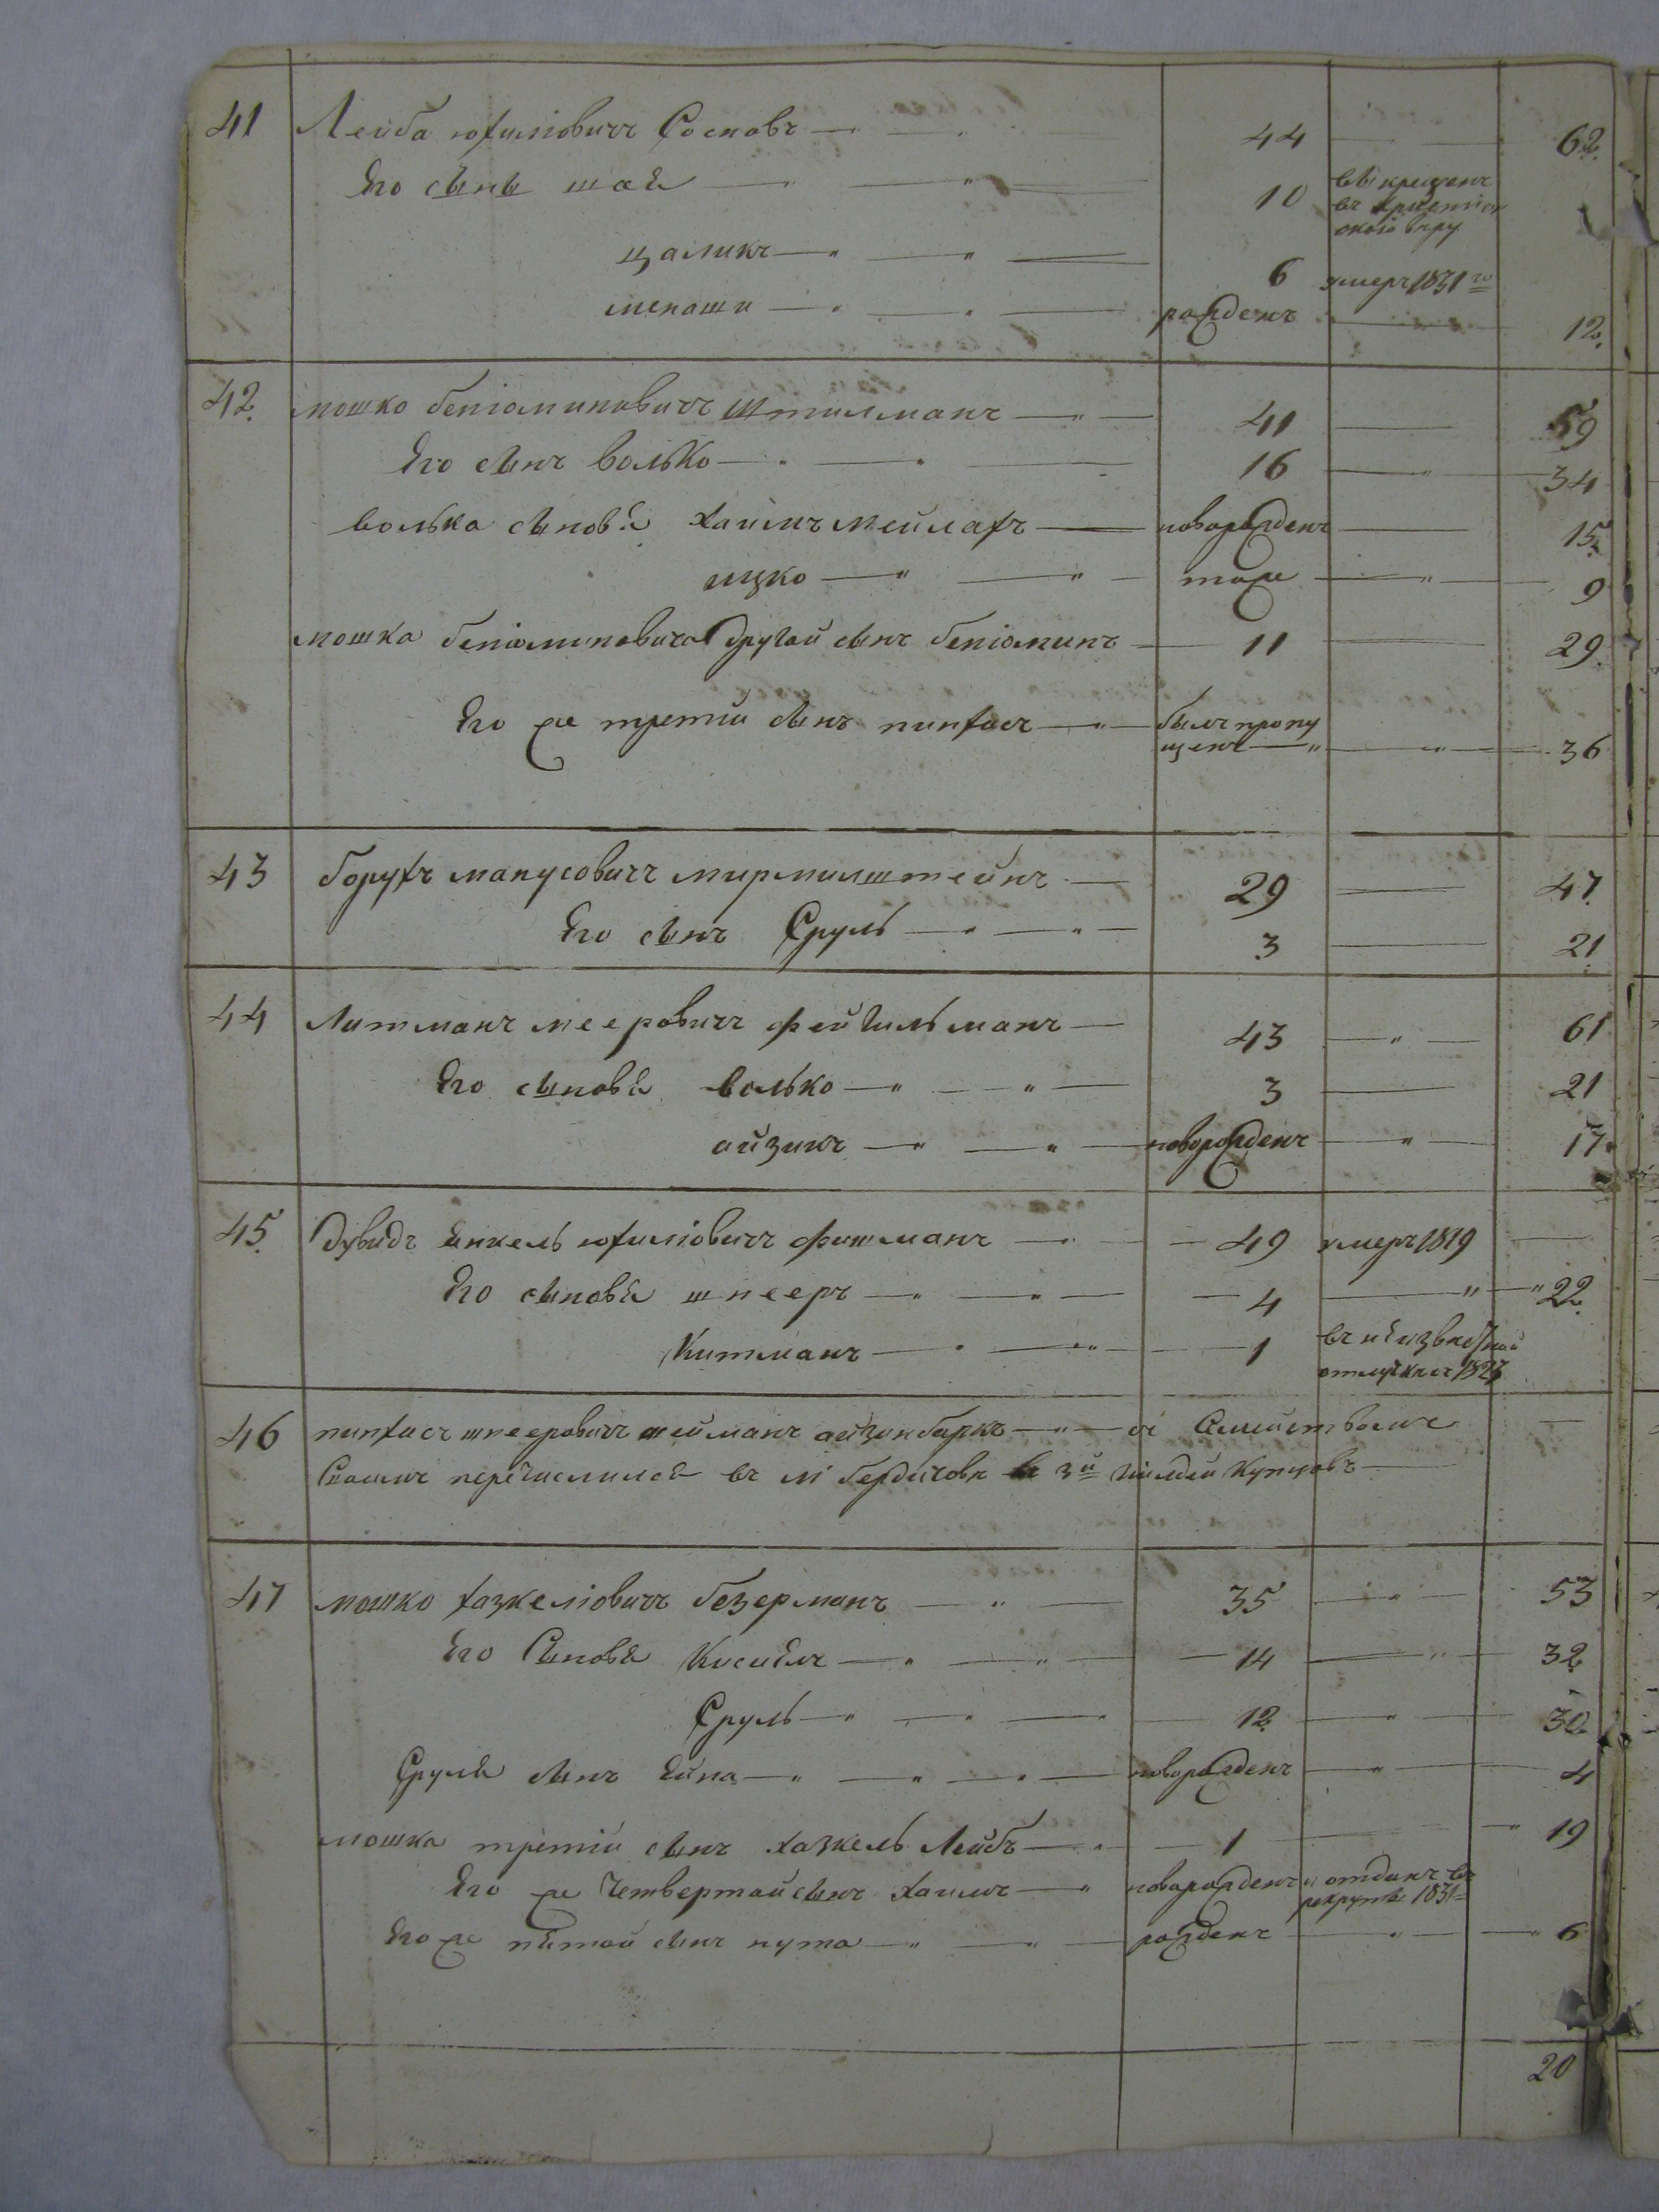 41 Лейба юхиміовичъ Сосновъ 44 62
Его сынъ шая 10 выкрещенъ въ христіанскою вѣру
цаликъ 6 умеръ 1831 го
менаши рожденъ 12
42 мошко беніоминовичъ Штилманъ 41 59
Его сынъ волько 16 34
волька сыновя хаимъ мейлахъ новорожденъ 15
ицко тоже 9
мошка беніоминовича другой сынъ беніоминъ 11 29
Его же третій сынъ пинхасъ былъ пропущенъ 36
43 борухъ манусовичъ мирмилштейнъ 29 47
Его сынъ Сруль 3 21
44 Литманъ мееровичъ фейгильманъ 43 61
Его сыновя волько 3 21
айзикъ новорожденъ 17
45 дувидъ янкель юхиліовичъ фишманъ 49 умеръ 1819
Его сыновя шнееръ 4 22
Китманъ 1 въ неизвѣстной отлучке съ 1827
46 пинхасъ шнееровичъ нейманъ айзинбаркъ съ Семействомъ
Своимъ перечислился въ м бердичовъ въ 3й гилдеи Купцовъ
47 мошко хазкеліовичъ безерманъ 35 53
Его Сыновя Кисиель 14 32
Сруль 12 30
Сруля сынъ Ейна новорожденъ 4
мошка третій сынъ хазкель Лейбъ 1 19
Его же Четвертой сынъ хаимъ новорожденъ и отданъ въ рекруты 1831
Его же пятой сынъ нута рожденъ 6
20